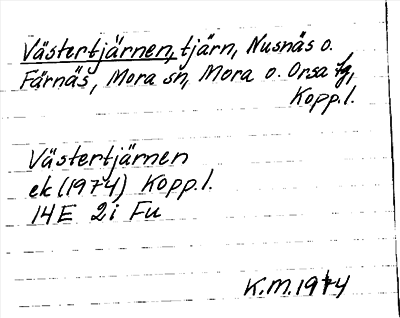 Västertjärnen, tjärn, Nusnäs o.
Färnäs, Mora sn, Mora o. Orsa tg,
Kopp.l.
Västertjärnen
ek (1974) Kopp.l.
14E 2i Fu
K.M. 1974